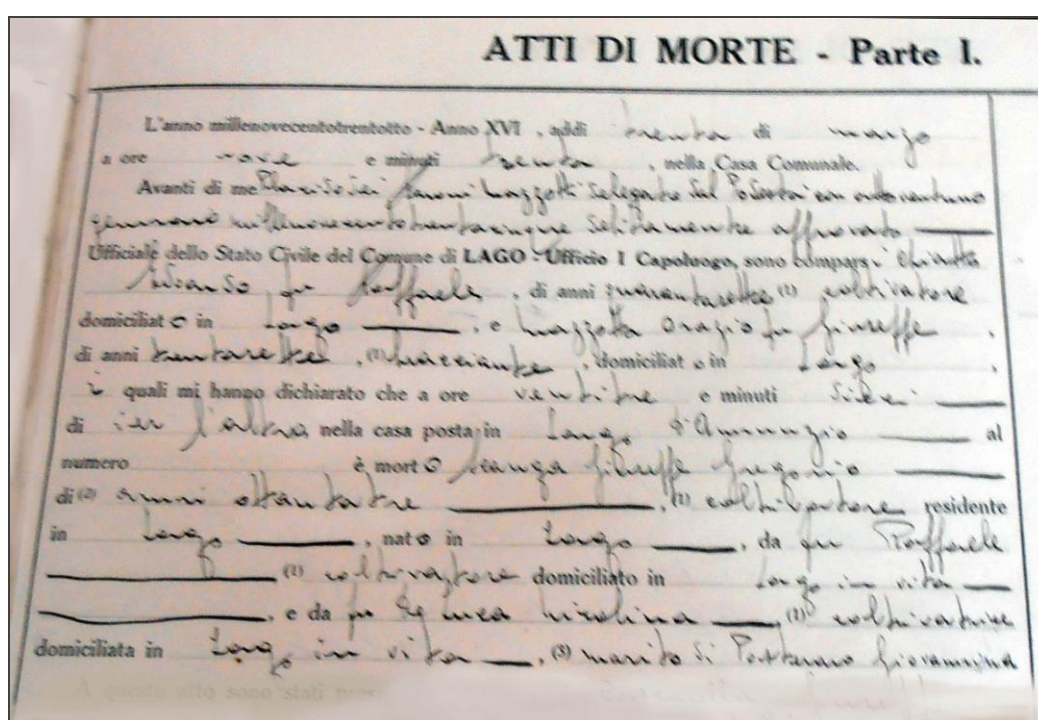 ATTI DI MORTE - Parte I.
L'anno millenovecentotrentotto - Anno XVI , addì trenta di marzo
a ore nove e minuti trenta , nella Casa Comunale.
Avanti di me Mazzotti delegato dal Podestà con atto ventuno
gennaio millenovecentotrentacinque debitamente approvato
Ufficiale dello Stato Civile del Comune di LAGO - Ufficio 1 Capoluogo, sono comparsi Chiatto
fu Raffaele , di anni quarantasette (1) coltivatore
domiciliato in Lago , e Mazzotta Orazio fu Giuseppe ,
di anni trentasette , (1) bracciante , domiciliato in Lago .
i quali mi hanno dichiarato che a ore ventitre e minuti dieci
di ier l'altro nella casa posta in Largo d'Annunzio al
numero è morto Scanga Giuseppe Gregorio
di (2) anni ottantatre , (1) coltivatore residente
in Lago , nato in Lago , da fu Raffaele
(1) coltivatore domiciliato in Lago in vita
, e da fu De Luca , (1) coltivatrice
domiciliata in Lago in vita , (3) marito di Posteraro Giovannina
A questo atto sono stati